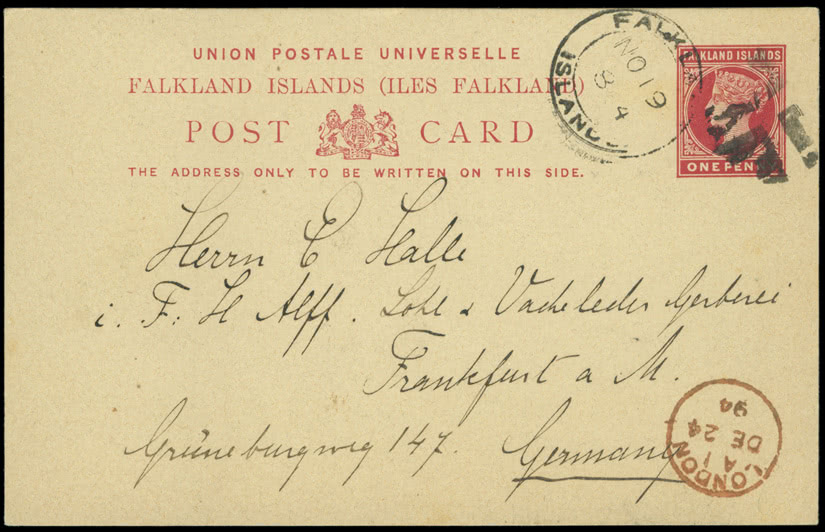 UNION POSTALE UNIVERSELLE
FALKLAND ISLANDS (ILES FALKLAND)
POST CARD
THE ADDRESS ONLY TO BE WRITTEN ON THIS SIDE.
FALKLAND ISLANDS
ONE PENNY
FALKLA
ISLANDS
NO 19
94
Herrn C Halle
i. F: H Alff. Sohl & Vacheleder Gerberei
Frankfurt a M.
Grüneburgweg 147.
Germany
LONDON
A 1
DE 24
94